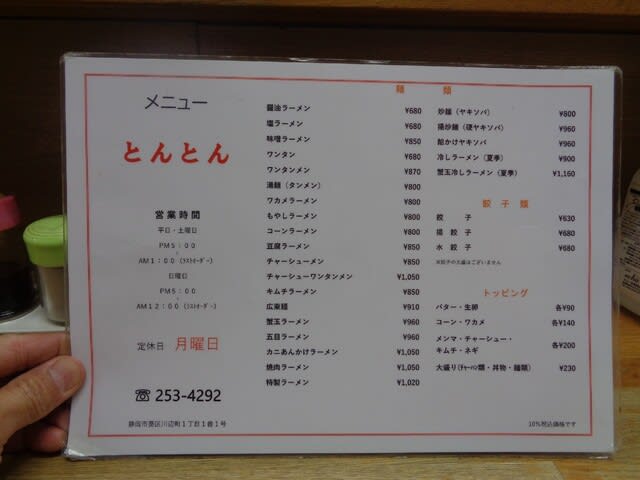 メニュー
とんとん
営業時間
平日・土曜日
PM5：00
～
AM1：00（ﾗｽﾄｵｰﾀﾞｰ）
日曜日
PM5：00
～
AM12：00（ﾗｽﾄｵｰﾀﾞｰ）
定休日 月曜日
☎ 253-4292
静岡市葵区川辺町1丁目1番1号
麺 類
醤油ラーメン ¥680
塩ラーメン ¥680
味噌ラーメン ¥850
ワンタン ¥680
ワンタンメン ¥870
湯麺（タンメン） ¥800
ワカメラーメン ¥800
もやしラーメン ¥800
コーンラーメン ¥800
豆腐ラーメン ¥850
チャーシューメン ¥850
チャーシューワンタンメン ¥1,050
キムチラーメン ¥850
広東麺 ¥910
蟹玉ラーメン ¥960
五目ラーメン ¥960
カニあんかけラーメン ¥1,050
焼肉ラーメン ¥1,050
特製ラーメン ¥1,020
炒麺（ヤキソバ） ¥800
揚炒麺（硬ヤキソバ） ¥960
餡かけヤキソバ ¥960
冷しラーメン（夏季） ¥900
蟹玉冷しラーメン（夏季） ¥1,160
餃子類
餃 子 ¥630
揚 餃 子 ¥680
水 餃 子 ¥680
※餃子の大盛はございません
トッピング
バター・生卵 各¥90
コーン・ワカメ 各¥140
メンマ・チャーシュー・
キムチ・ネギ 各¥200
大盛り(ﾁｬｰﾊﾝ類・丼物・麺類) ¥230
10%税込価格です